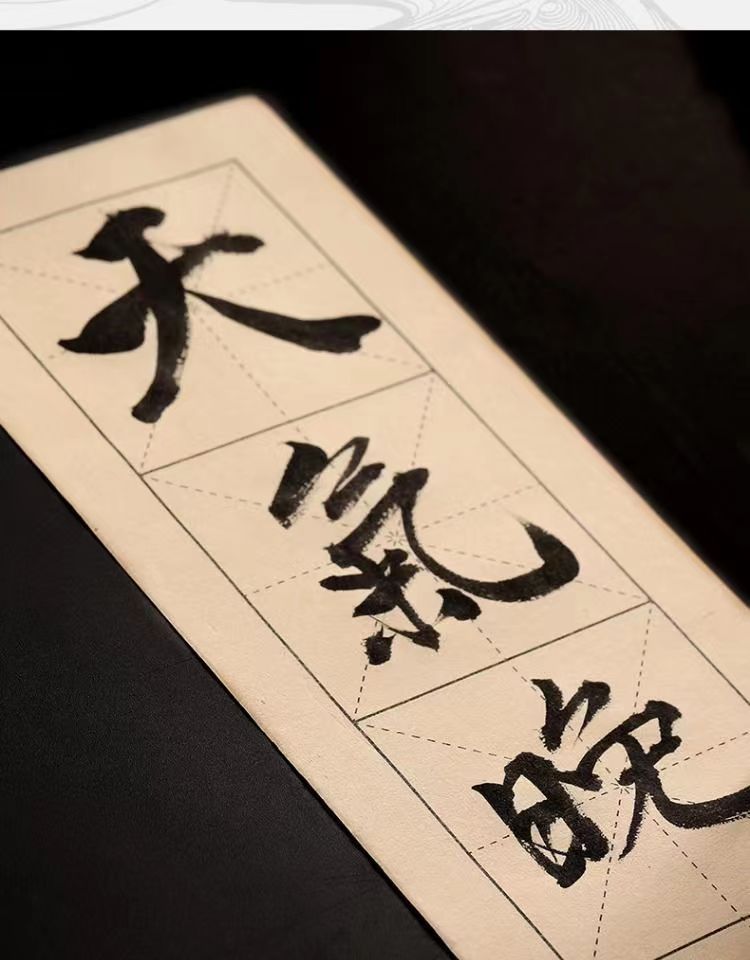 天氣晚